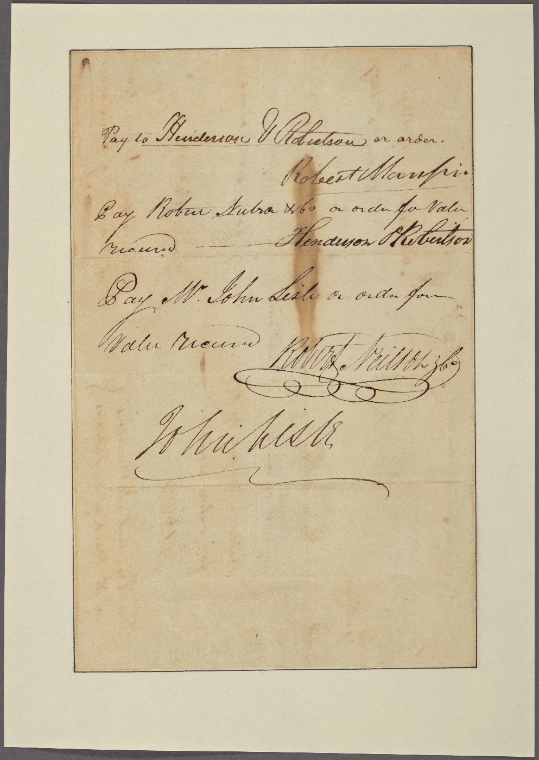 Pay to Henderson & Robertson or order.
Robert
Pay Robert & Co or order for Value
received Henderson & Robertson
Pay Mr. John Lisle or order for
Value received
Robert Neilson & Co
John Lisle